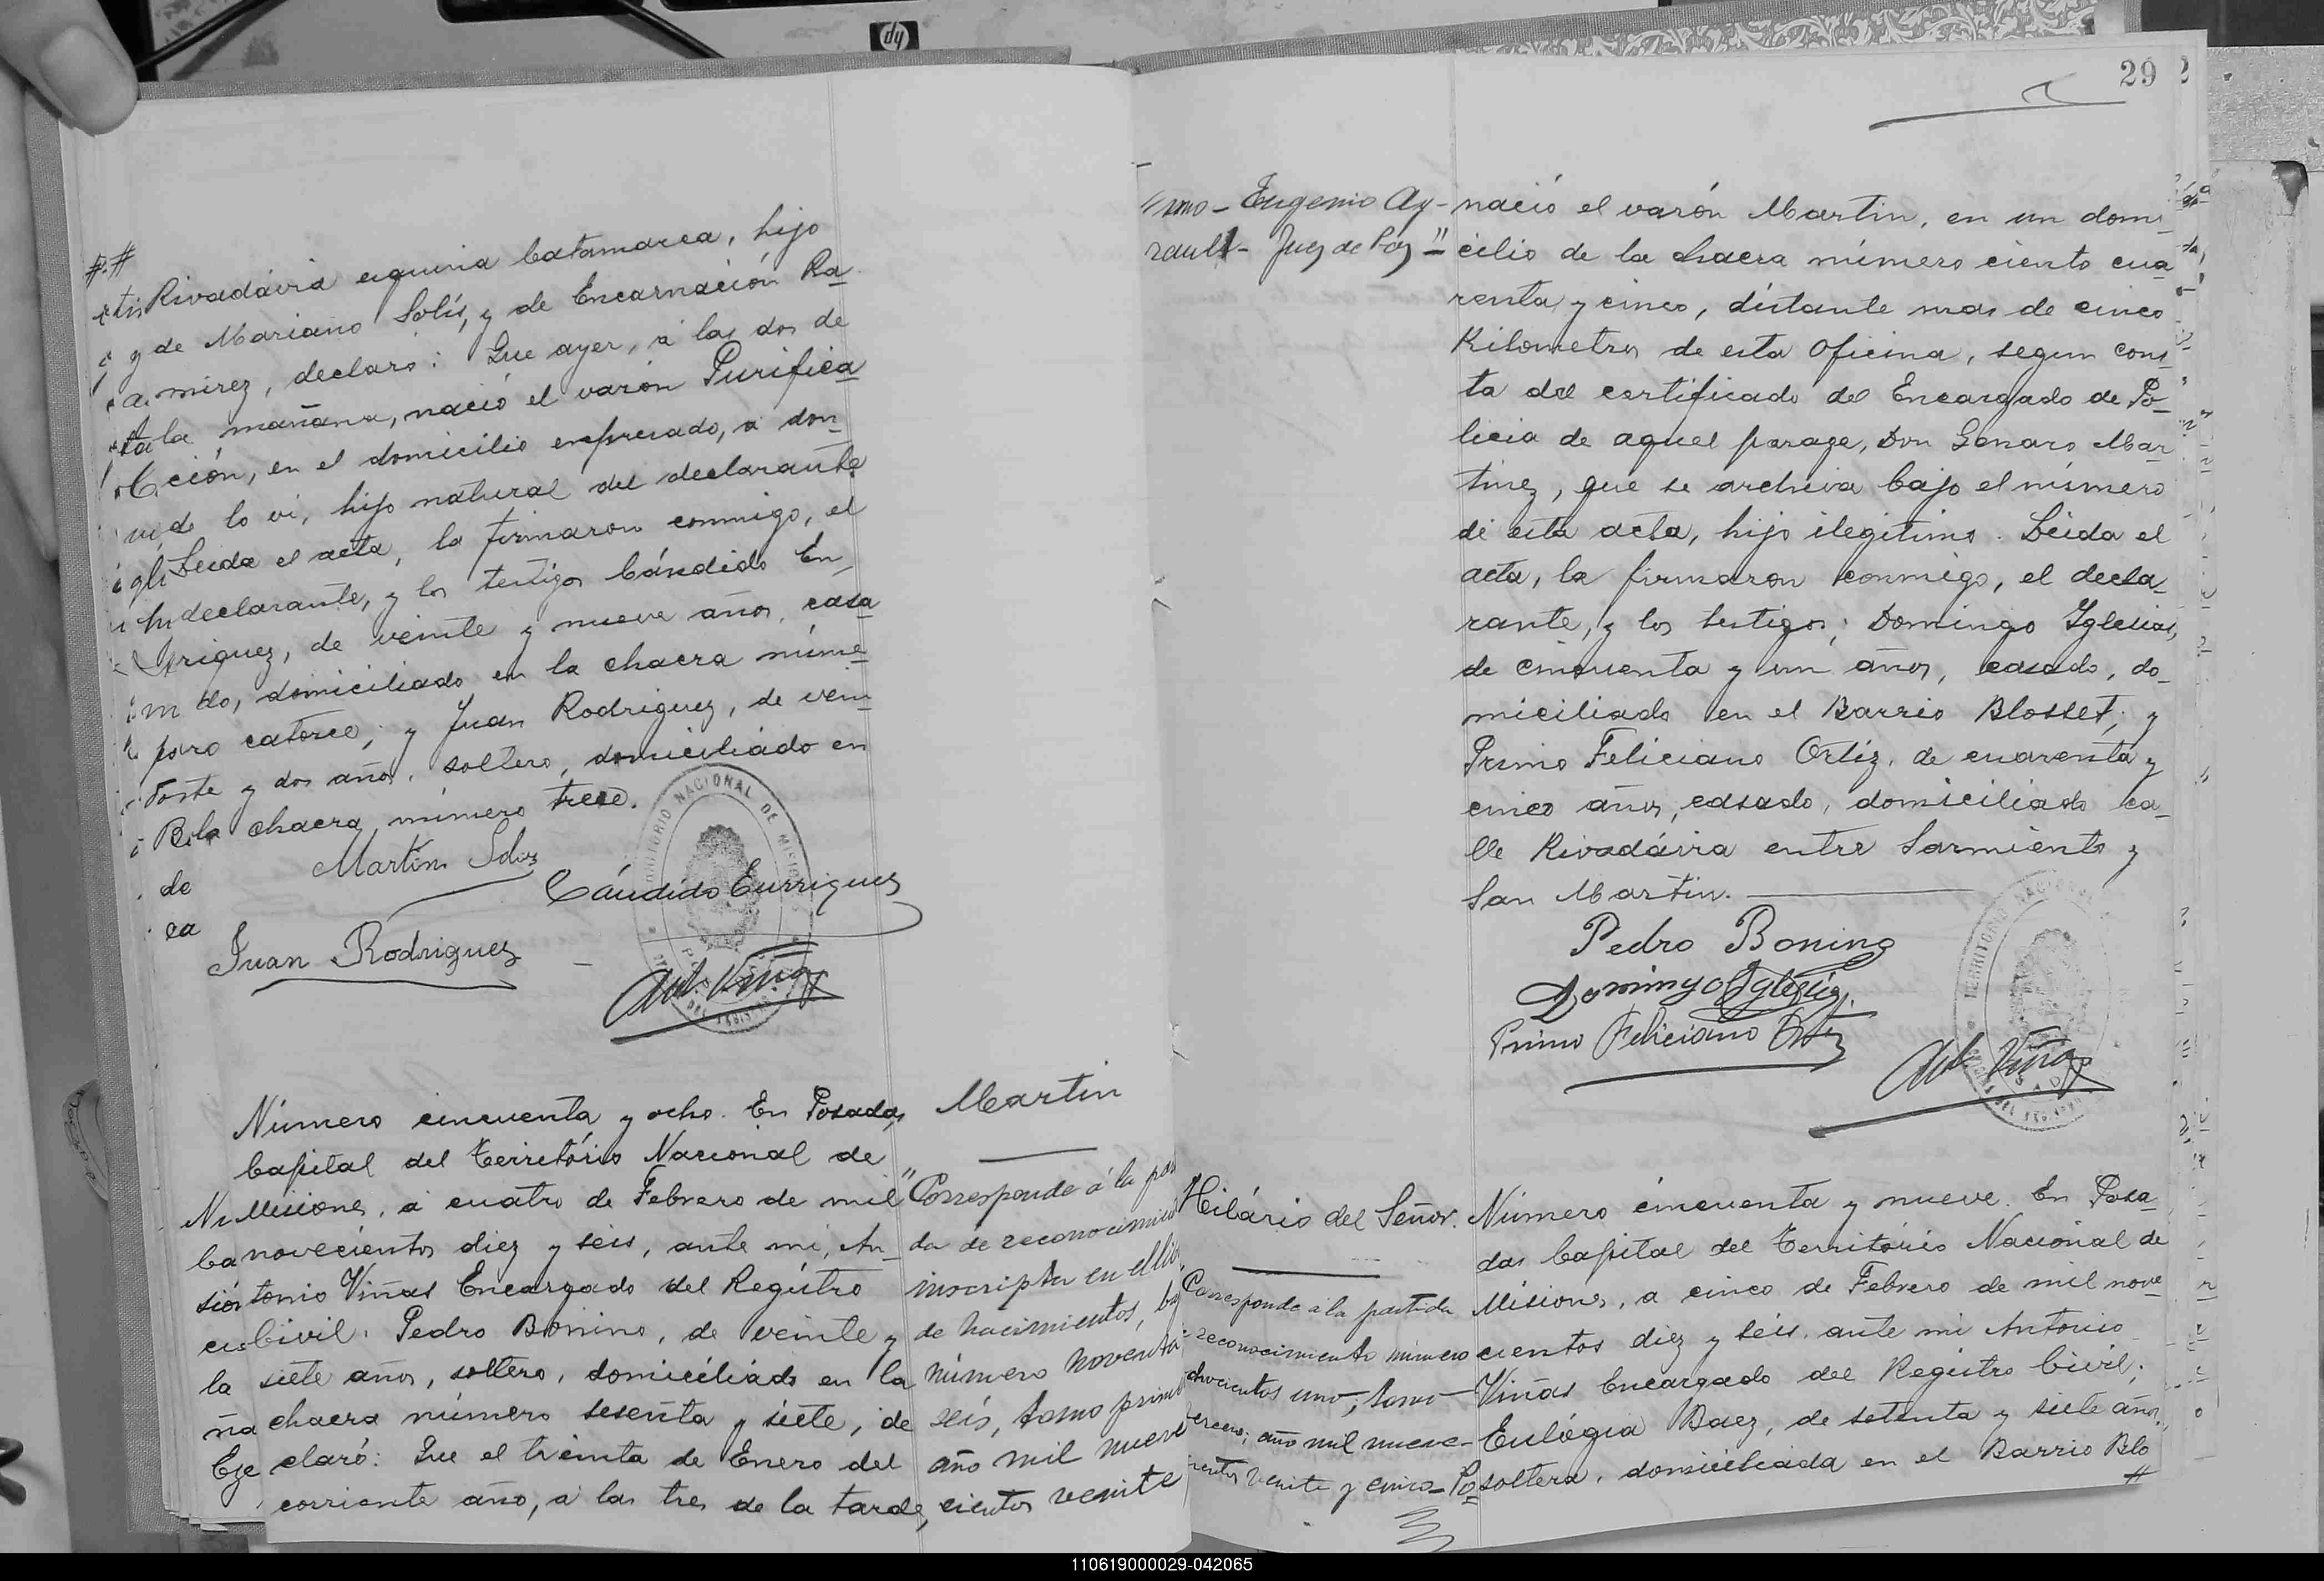 Rivadávia esquina Catamarca, hijo
de Mariano Solís, y de Encarnación Ra
mirez, declaró: Que ayer, á las dos de
la mañana, nació el varón Purifica
ción, en el domicilio expresado, a don
de lo vi, hijo natural del declarante
Leida el acta, la firmaron conmigo, el
declarante, y los testigos Cándido En
riquez, de veinte y nueve años, casa
do, domiciliado en la chacra núme
ro catorce; y Juan Rodriguez, de vein
te y dos años, soltero, domiciliado en
la chacra número trece.
Martin Solis
Cándido Enrriquez
Juan Rodriguez
Ant. Viñas
Número cincuenta y ocho. En Posadas
Capital del Território Nacional de
Misiones, a cuatro de Febrero de mil
novecientos diez y seis, ante mi, An
tonio Viñas Encargado del Registro
Civil. Pedro Bonino, de veinte y
siete años, soltero, domiciliado en la
chacra número sesenta y siete, de
claró: Que el treinta de Enero del
corriente año, a las tres de la tarde,
Martin
"Corresponde á la par
da de reconocimien
inscripta en el li
de nacimientos, ba
número noventa
seis, tomo prim
año mil nueve
cientos veinte
29
Eugenio Ay-
rault - Juez de Paz"
nació el varón Martin, en un domi
cilio de la chacra número ciento cua
renta y cinco, distante mas de cinco
Kilometros de esta Oficina, segun cons
ta del certificado del Encargado de Po
licia de aquel parage, Don Genaro Mar
tinez, que se archiva bajo el número
de esta acta, hijo ilegitimo. Leida el
acta, la firmaron conmigo, el decla
rante, y los testigos; Domingo Iglesias,
de cincuenta y un años, casado, do
miciliado en el Barrio Blosset; y
Primo Feliciano Ortiz, de cuarenta y
cinco años, casado, domiciliado ca
lle Rivadávia entre Sarmiento y
San Martin.
Pedro Bonino
Domingo Iglesias
Primo Feliciano Ortiz
Ant. Viñas
Hilário del Señor.
Corresponde á la partida
reconocimiento número
ochocientos uno, tomo
tercero, año mil nueve-
cientos veinte y cinco - Po
Número cincuenta y nueve. En Posa
das Capital del Território Nacional de
Misiones, a cinco de Febrero de mil nove
cientos diez y seis, ante mi Antonio
Viñas Encargado del Registro Civil;
Eulógia Baez, de setenta y siete años,
soltera, domiciliada en el Barrio Blo
110619000029-042065